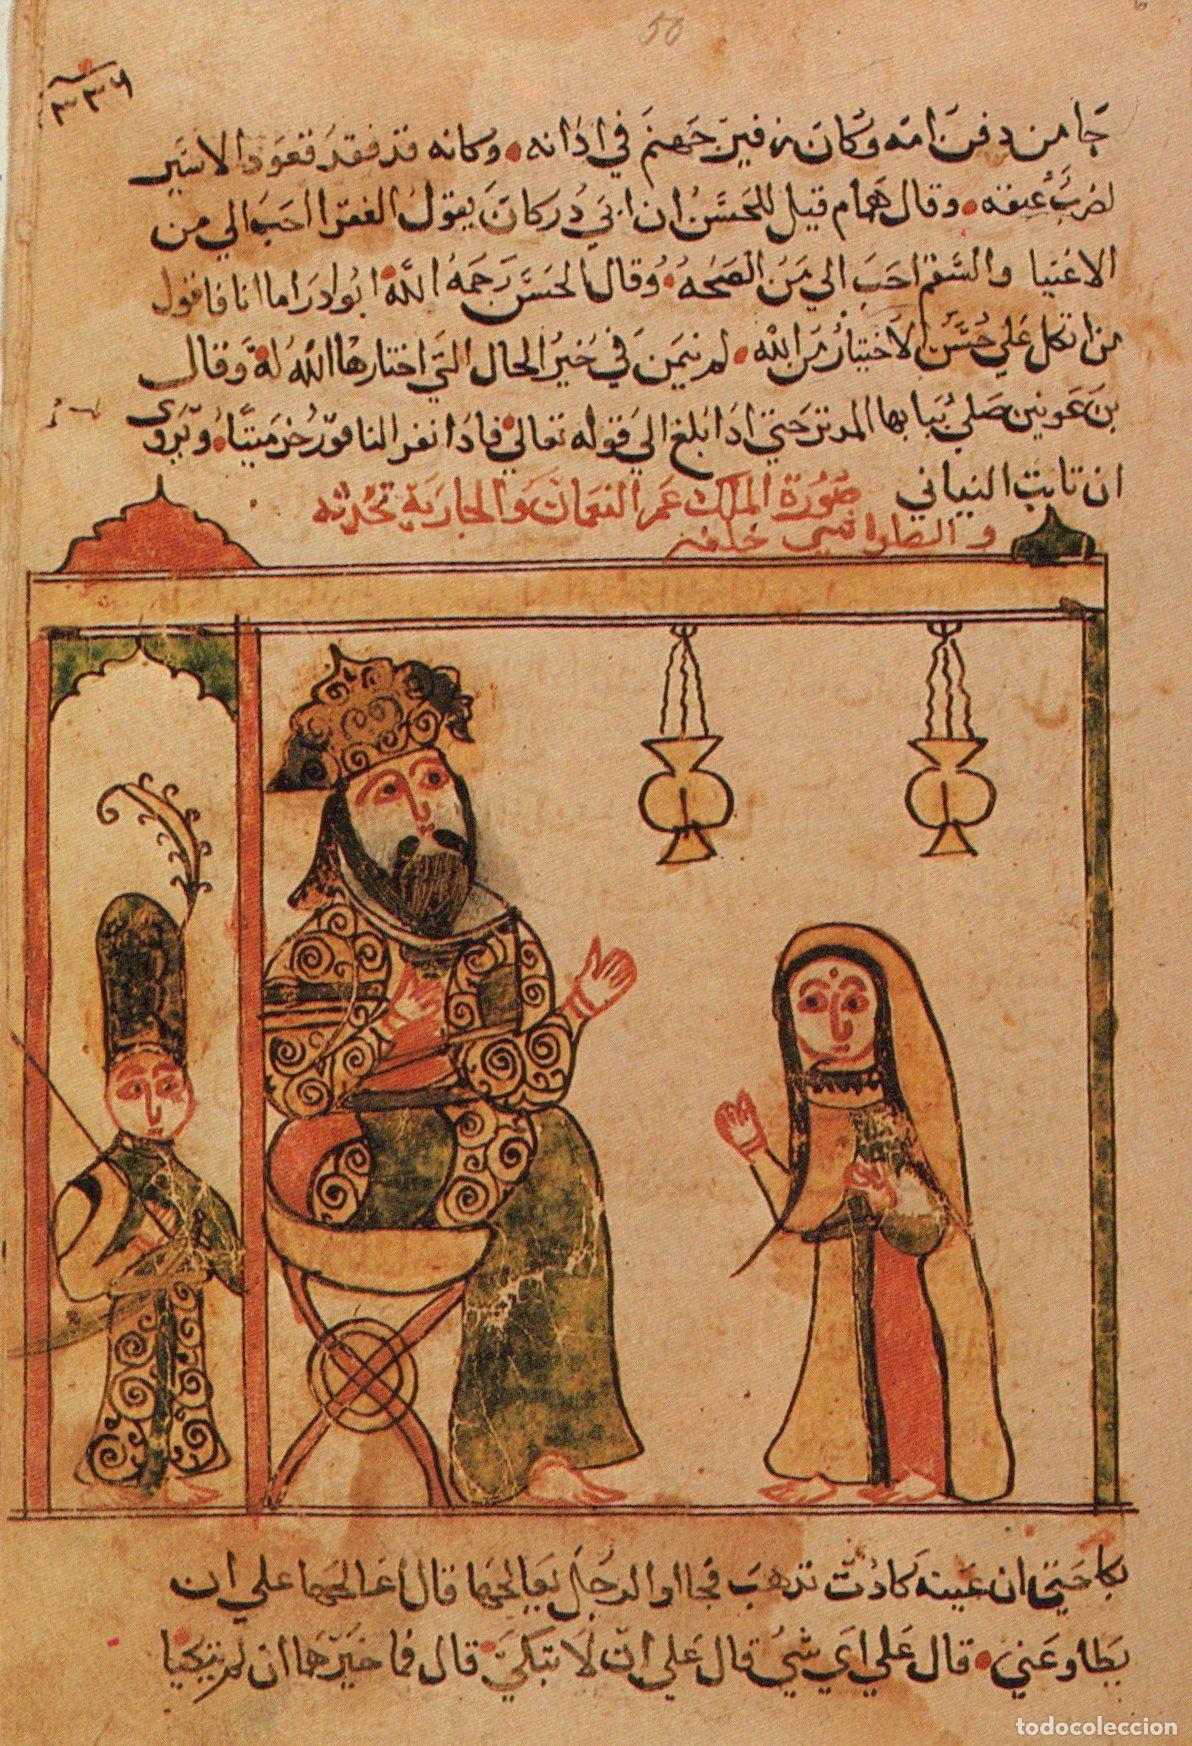 50
٣٣٦
جا من دفن امه وكان زفير جهنم في اذانه وكانه قد فقد قعود الاسير
لضرب عنقه وقال همام قيل للحسن ان ابي در كان يقول الفقر احب الي من
الاغنيا والسقم احب الي من الصحه وقال الحسن رحمه الله ابوا در اما انا فاقول
من اتكل علي حسن الاختيار من الله لم يتمن في غير الحال التي اختارها الله له وقال
بن صلي بنا بها المدثر حتي ادا بلغ الي قوله تعالي فادا نقر الناقور خر ميتا ويروي
ان تابت البناني
صورة الملك عمر النعمان والجارية تحدثه
والطواشي خلفه
بكا حتي ان عينه كادت تدهب فجاوا الرجل يعالجها قال اعالجها علي ان
يطاوعني قال علي اي شي قال علي ان لا تبكي قال فما خيرهما ان لم تبكيا
todocoleccion